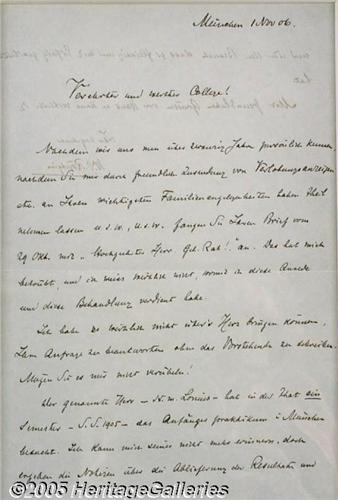 München 1 Nov 06.
Verehrter und werther College!
Nachdem wir uns nun über zwanzig Jahre persönlich kennen,
nachdem Sie mir durch freundliche Zusendung von Verlobungsanzeigen
etc. an Ihren wichtigsten Familienangelegenheiten haben Theil
nehmen lassen u. s. w., u. s. w. fangen Sie Ihren Brief vom
29 Okt. mit „Hochgeehrter Herr Geh. Rath!" an. Das hat mich
betrübt, und ich weiss wirklich nicht, womit ich diese Anrede
und diese Behandlung verdient habe.
Ich habe es wirklich nicht über's Herz bringen können,
Ihre Anfrage zu beantworten ohne das Vorstehende zu schreiben.
Mögen Sie es mir nicht verübeln!
Der genannte Herr - H. M. - hat in der That ein
Semester - S. S. 1905 - das Anfänger praktikum in München
besucht. Ich kann mich seiner nicht mehr erinnern, doch
ergeben die Notizen über die Ablieferung der Resultate und
©2005 HeritageGalleries